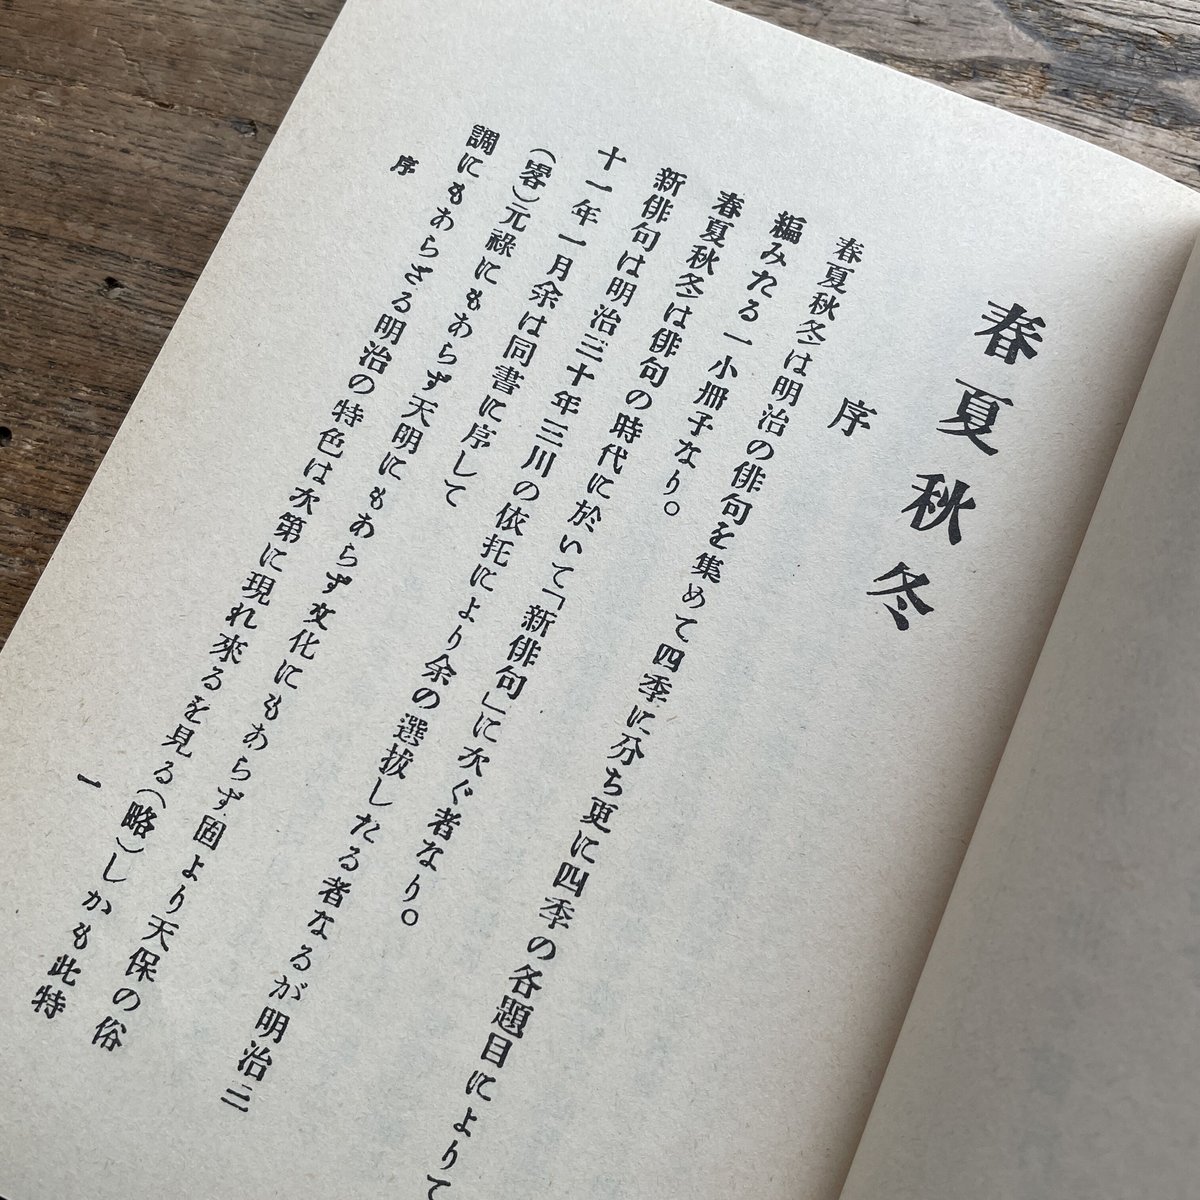 春夏秋冬
序
春夏秋冬は明治の俳句を集めて四季に分ち更に四季の各題目によりて
編みたる一小冊子なり。
春夏秋冬は俳句の時代に於いて「新俳句」に次ぐ者なり。
新俳句は明治三十年三川の依托により余の選抜したる者なるが明治三
十一年一月余は同書に序して
(畧)元祿にもあらず天明にもあらず文化にもあらず固より天保の俗
調にもあらざる明治の特色は次第に現れ來るを見る(略)しかも此特
序
一